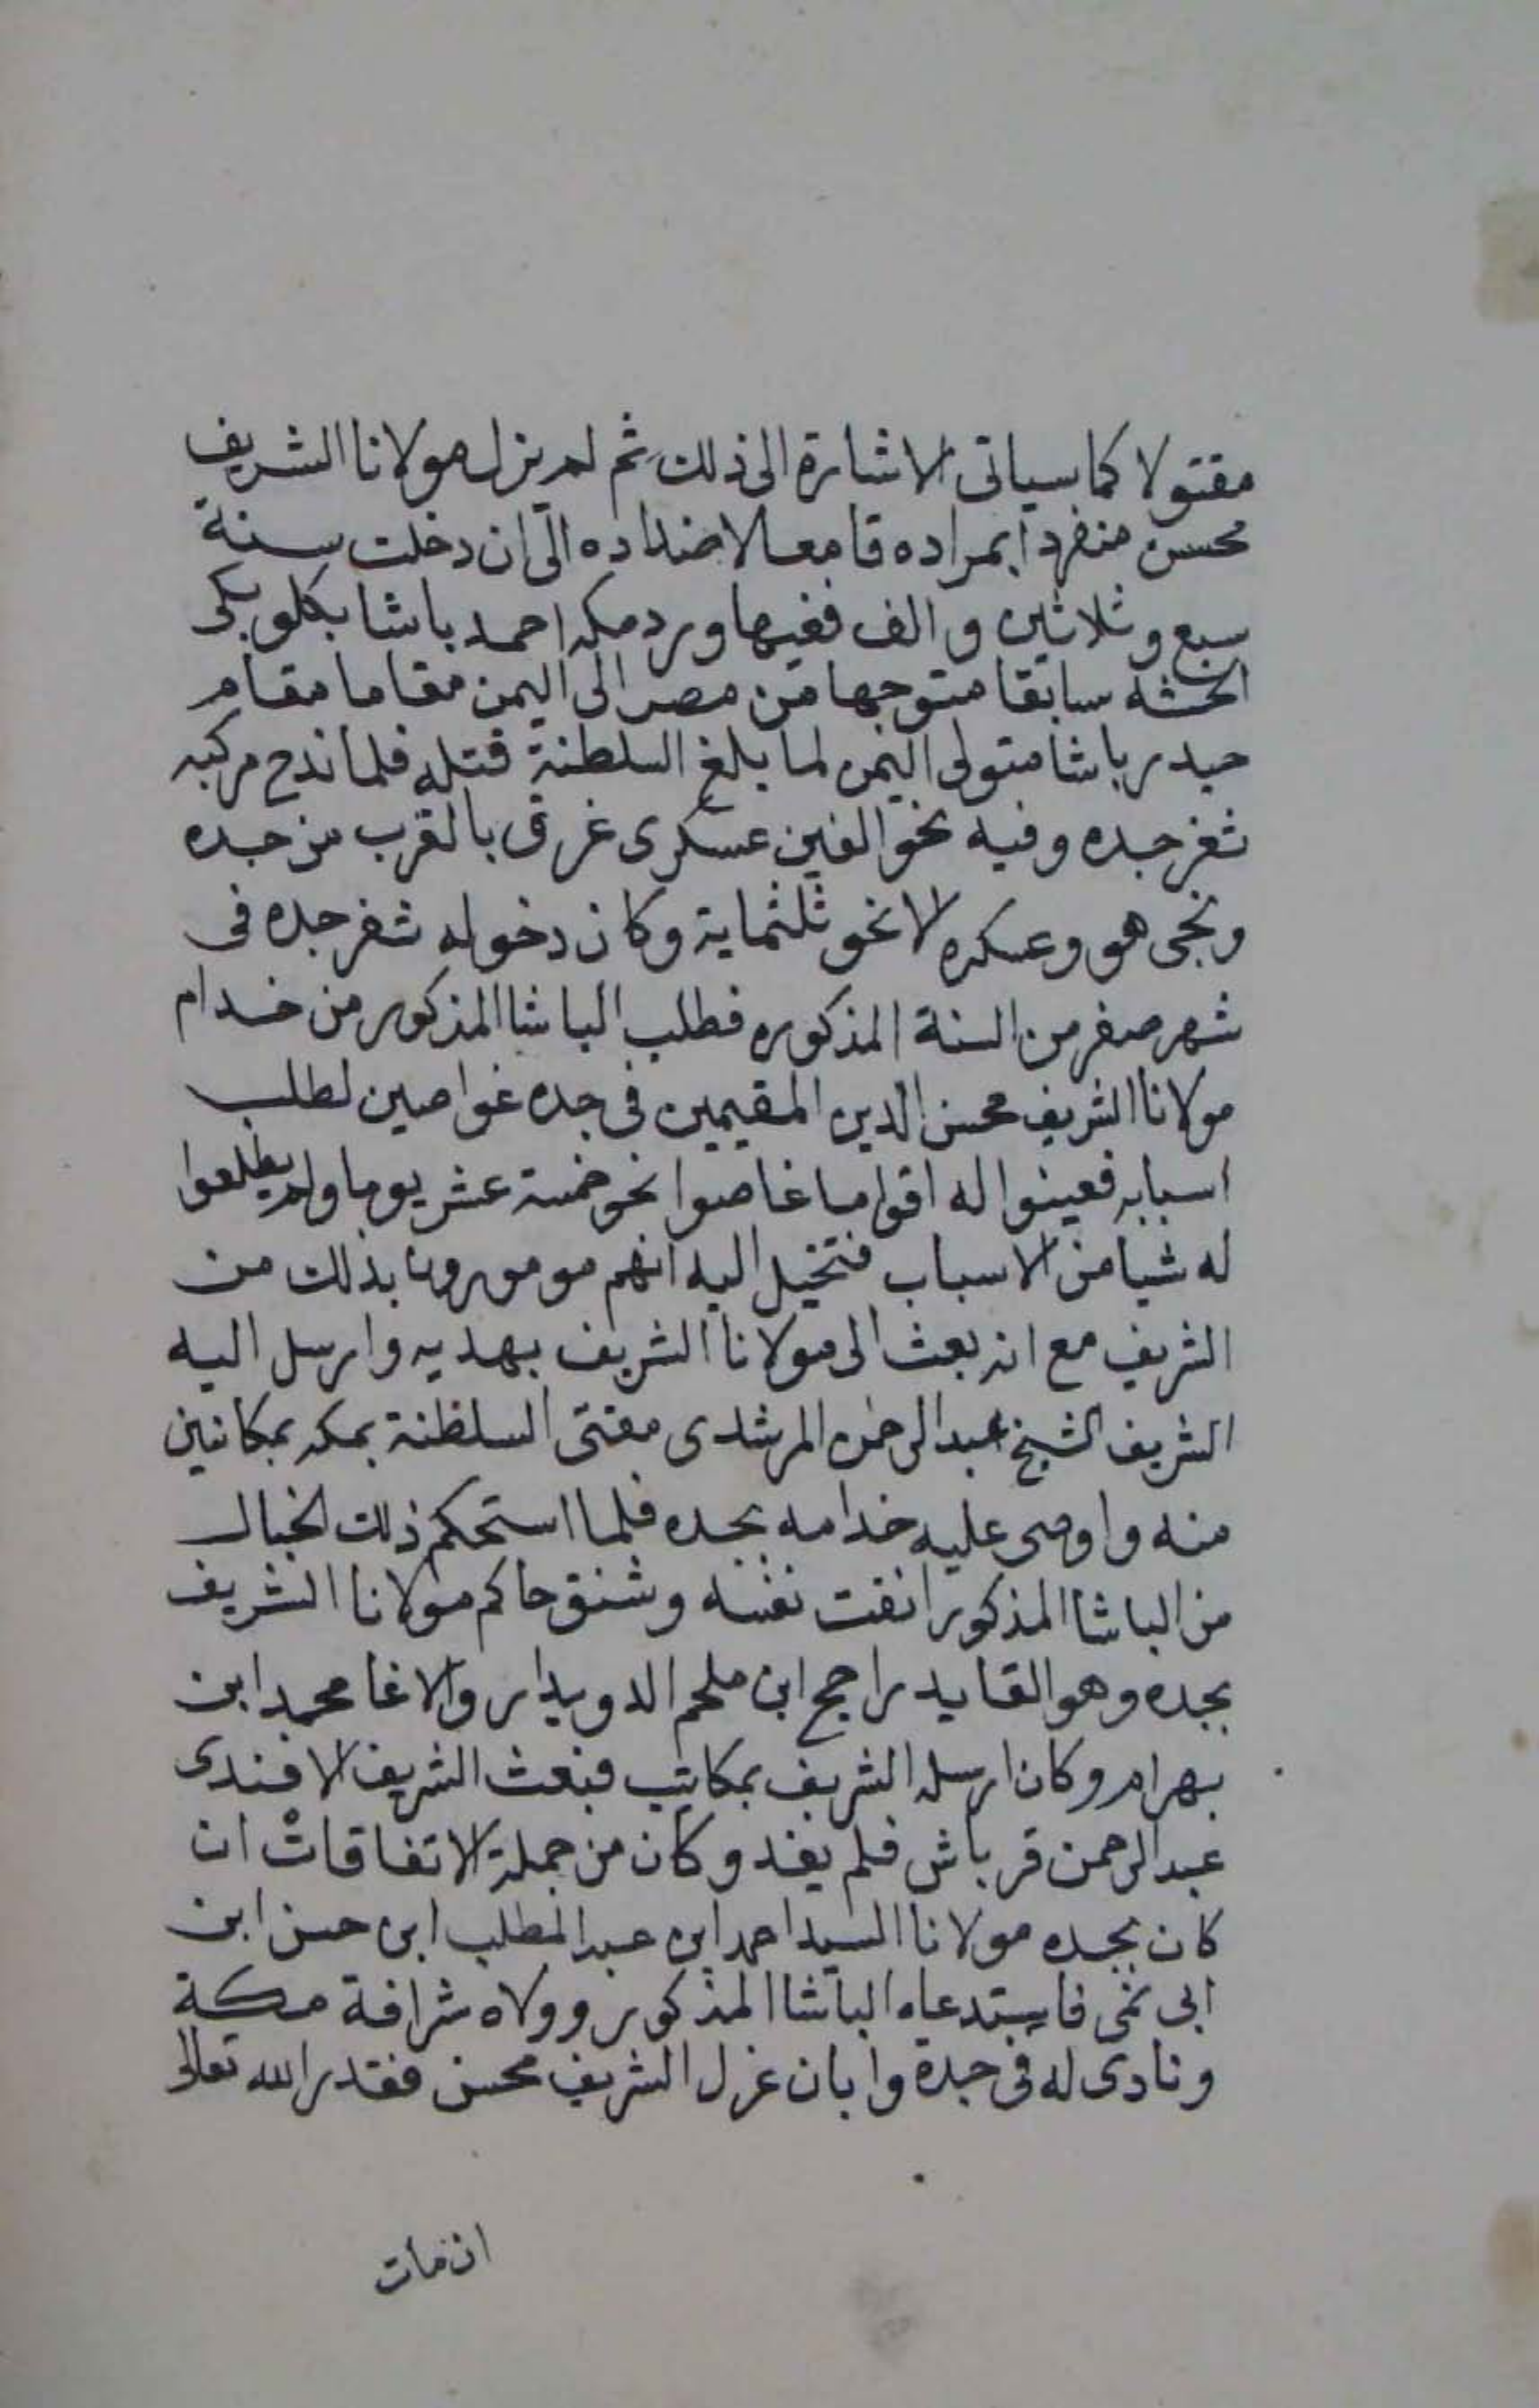 مقتولا كما سياتى الاشارة الى ذلك ثم لم يزل مولانا الشريف
محسن منفردا بمراده قامعا لاضداده الى ان دخلت سنة
سبع وثلاثين والف ففيها ورد مكه احمد باشا بكلوبكى
الحبشه سابقا متوجها من مصر الى اليمن مقاما مقام
حيدر باشا متولى اليمن لما بلغ السلطنة قتله فلما ندح مركبه
ثغر جده وفيه نحو الفين عسكرى غرق بالقرب من جده
ونجى هو وعسكره الا نحو ثلثماية وكان دخوله ثغر جده فى
شهر صفر من السنة المذكوره فطلب الباشا المذكور من خدام
مولانا الشريف محسن الدين المقيمين فى جده غواصين لطلب
اسبابه فعينوا له اقواما غاصوا نحو خمسة عشر يوما ولم يطلعوا
له شيا من الاسباب فتخيل اليه انهم مومورون بذلك من
الشريف مع انه بعث الى مولانا الشريف بهديه وارسل اليه
الشريف الشيخ عبد الرحمن المرشدى مفتى السلطنة بمكه بمكاتيب
منه واوصى عليه خدامه بجده فلما استحكم ذلك الخيال
من الباشا المذكور انفت نفسه وشنق حاكم مولانا الشريف
بجده وهو القايد راجح ابن ملحم الدويدار والاغا محمد ابن
بهرام وكان ارسله الشريف بمكاتيب فبعث الشريف الافندى
عبد الرحمن قرباش فلم يفد وكان من جملة الاتفاقات ان
كان بجده مولانا السيد احمد ابن عبد المطلب ابن حسن ابن
ابى نمى فاستدعاه الباشا المذكور وولاه شرافة مكة
ونادى له فى جدة وابان عزل الشريف محسن فقدر الله تعالى
ان مات